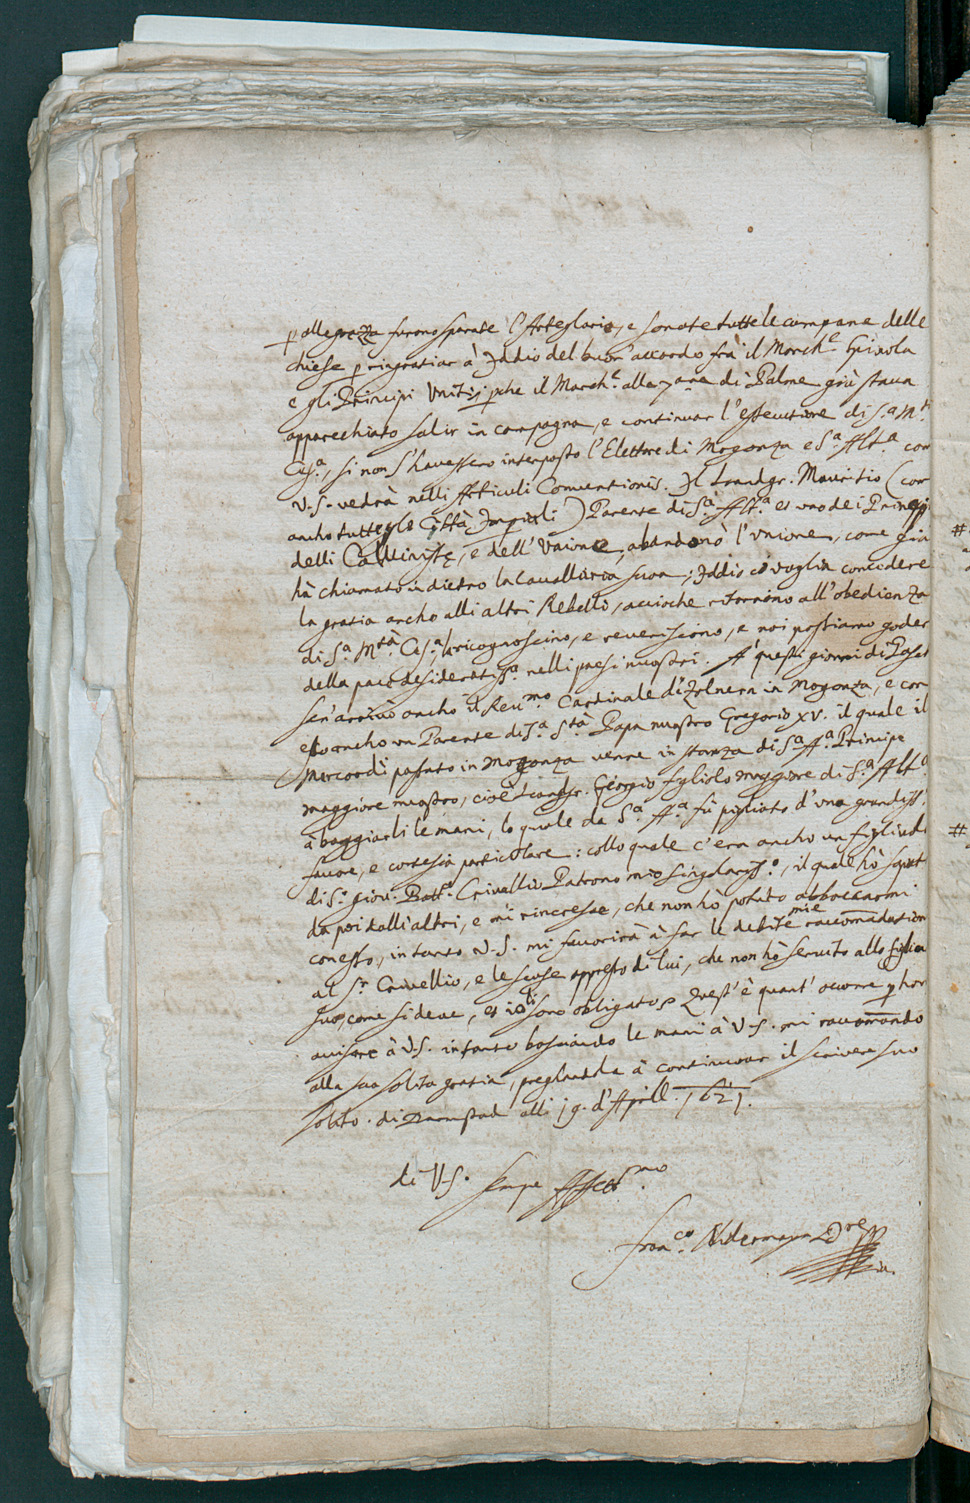 p allegrezza furono sparate l'Artegliaria, e sonate tutte le campane delle
chiese p ringratiar à Iddio del buon' accordo frà il March.e Spinola
e gli Principi Uniti; pche il March.e alla di Palme già staua
apparechiato salir in campagna, e continuar l'essecutione di S.a M.tà
Ces.a, si non s'havessero interposto l'Elettore di Mogonza e S.a Alt.a com
V.S. vedrà nelli Articuli Conventionis. Il Landgr. Mauritio (con
ancho tutte le Città Imperiali) Parente di S.a Alt.a et uno dei Principi
delli Calvinisti, e dell' Unione, abandonò l'unione, come già
hà chiamato in dietro la Cavalleria sua; Iddio ci voglia concedere
la gratia ancho alli altri Rebelli, accioche ritornino all' obedienza
di S.a M.tà Ces.a, la ricognoscino, e reveriscono, e noi possiamo goder
della pace desideratiss.a nelli paesi nuostri. A' questi giorni di Pasct
sen' arrivò ancho il Reu.mo Cardinale di Zolnern in Mogonza, e con
esso ancho un Parente di S.a S.tà Papa nuostro Gregorio XV. il quale il
Mercordi passato in Mogonza venne in stanza di S.a A.a Principe
maggiore nuostro, cioè Landgr. Georgio figliolo maggiore di S.a Alt.a
à baggiarli le mani, lo quale da S.a A.a fù pigliato d'una grandiss.
favore, e cortesia particolare: collo quale c'era ancho un figliuolo
di S.r Giov. Batt.a Crivellio Patrono mio singulariss.o, il quale hò saput
da poi dalli altri, e mi rincresce, che non hò potuto abboccarmi
con esso, intanto V.S. mi favorirà à far le debite mie raccomēdation
al S.r Crivellio, e le scuse appresso di lui, che non hò servito allo figlio
suo, come si deve, et io li sono obligato. Quest' è quant' ocorre p hor
auisare à V.S. intanto bosciando le mani à V.S. mi raccomando
alla sua solita gratia, pregandola à continuoar il scrivere suo
solito. di Darmstad alli 19. d'Aprill. 1621.
di V.S. sempe Affett.mo
Fran.co Nidermayn D.re